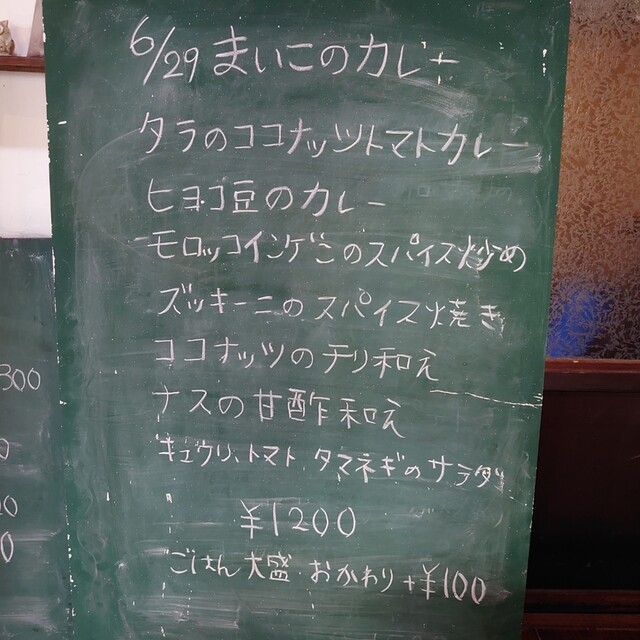 6/29 まいこのカレー
タラのココナッツトマトカレー
ヒヨコ豆のカレー
モロッコインゲンのスパイス炒め
ズッキーニのスパイス焼き
ココナッツのチリ和え
ナスの甘酢和え
キュウリ、トマト タマネギのサラダ
¥1200
ごはん大盛・おかわり+¥100
300
0
00
0